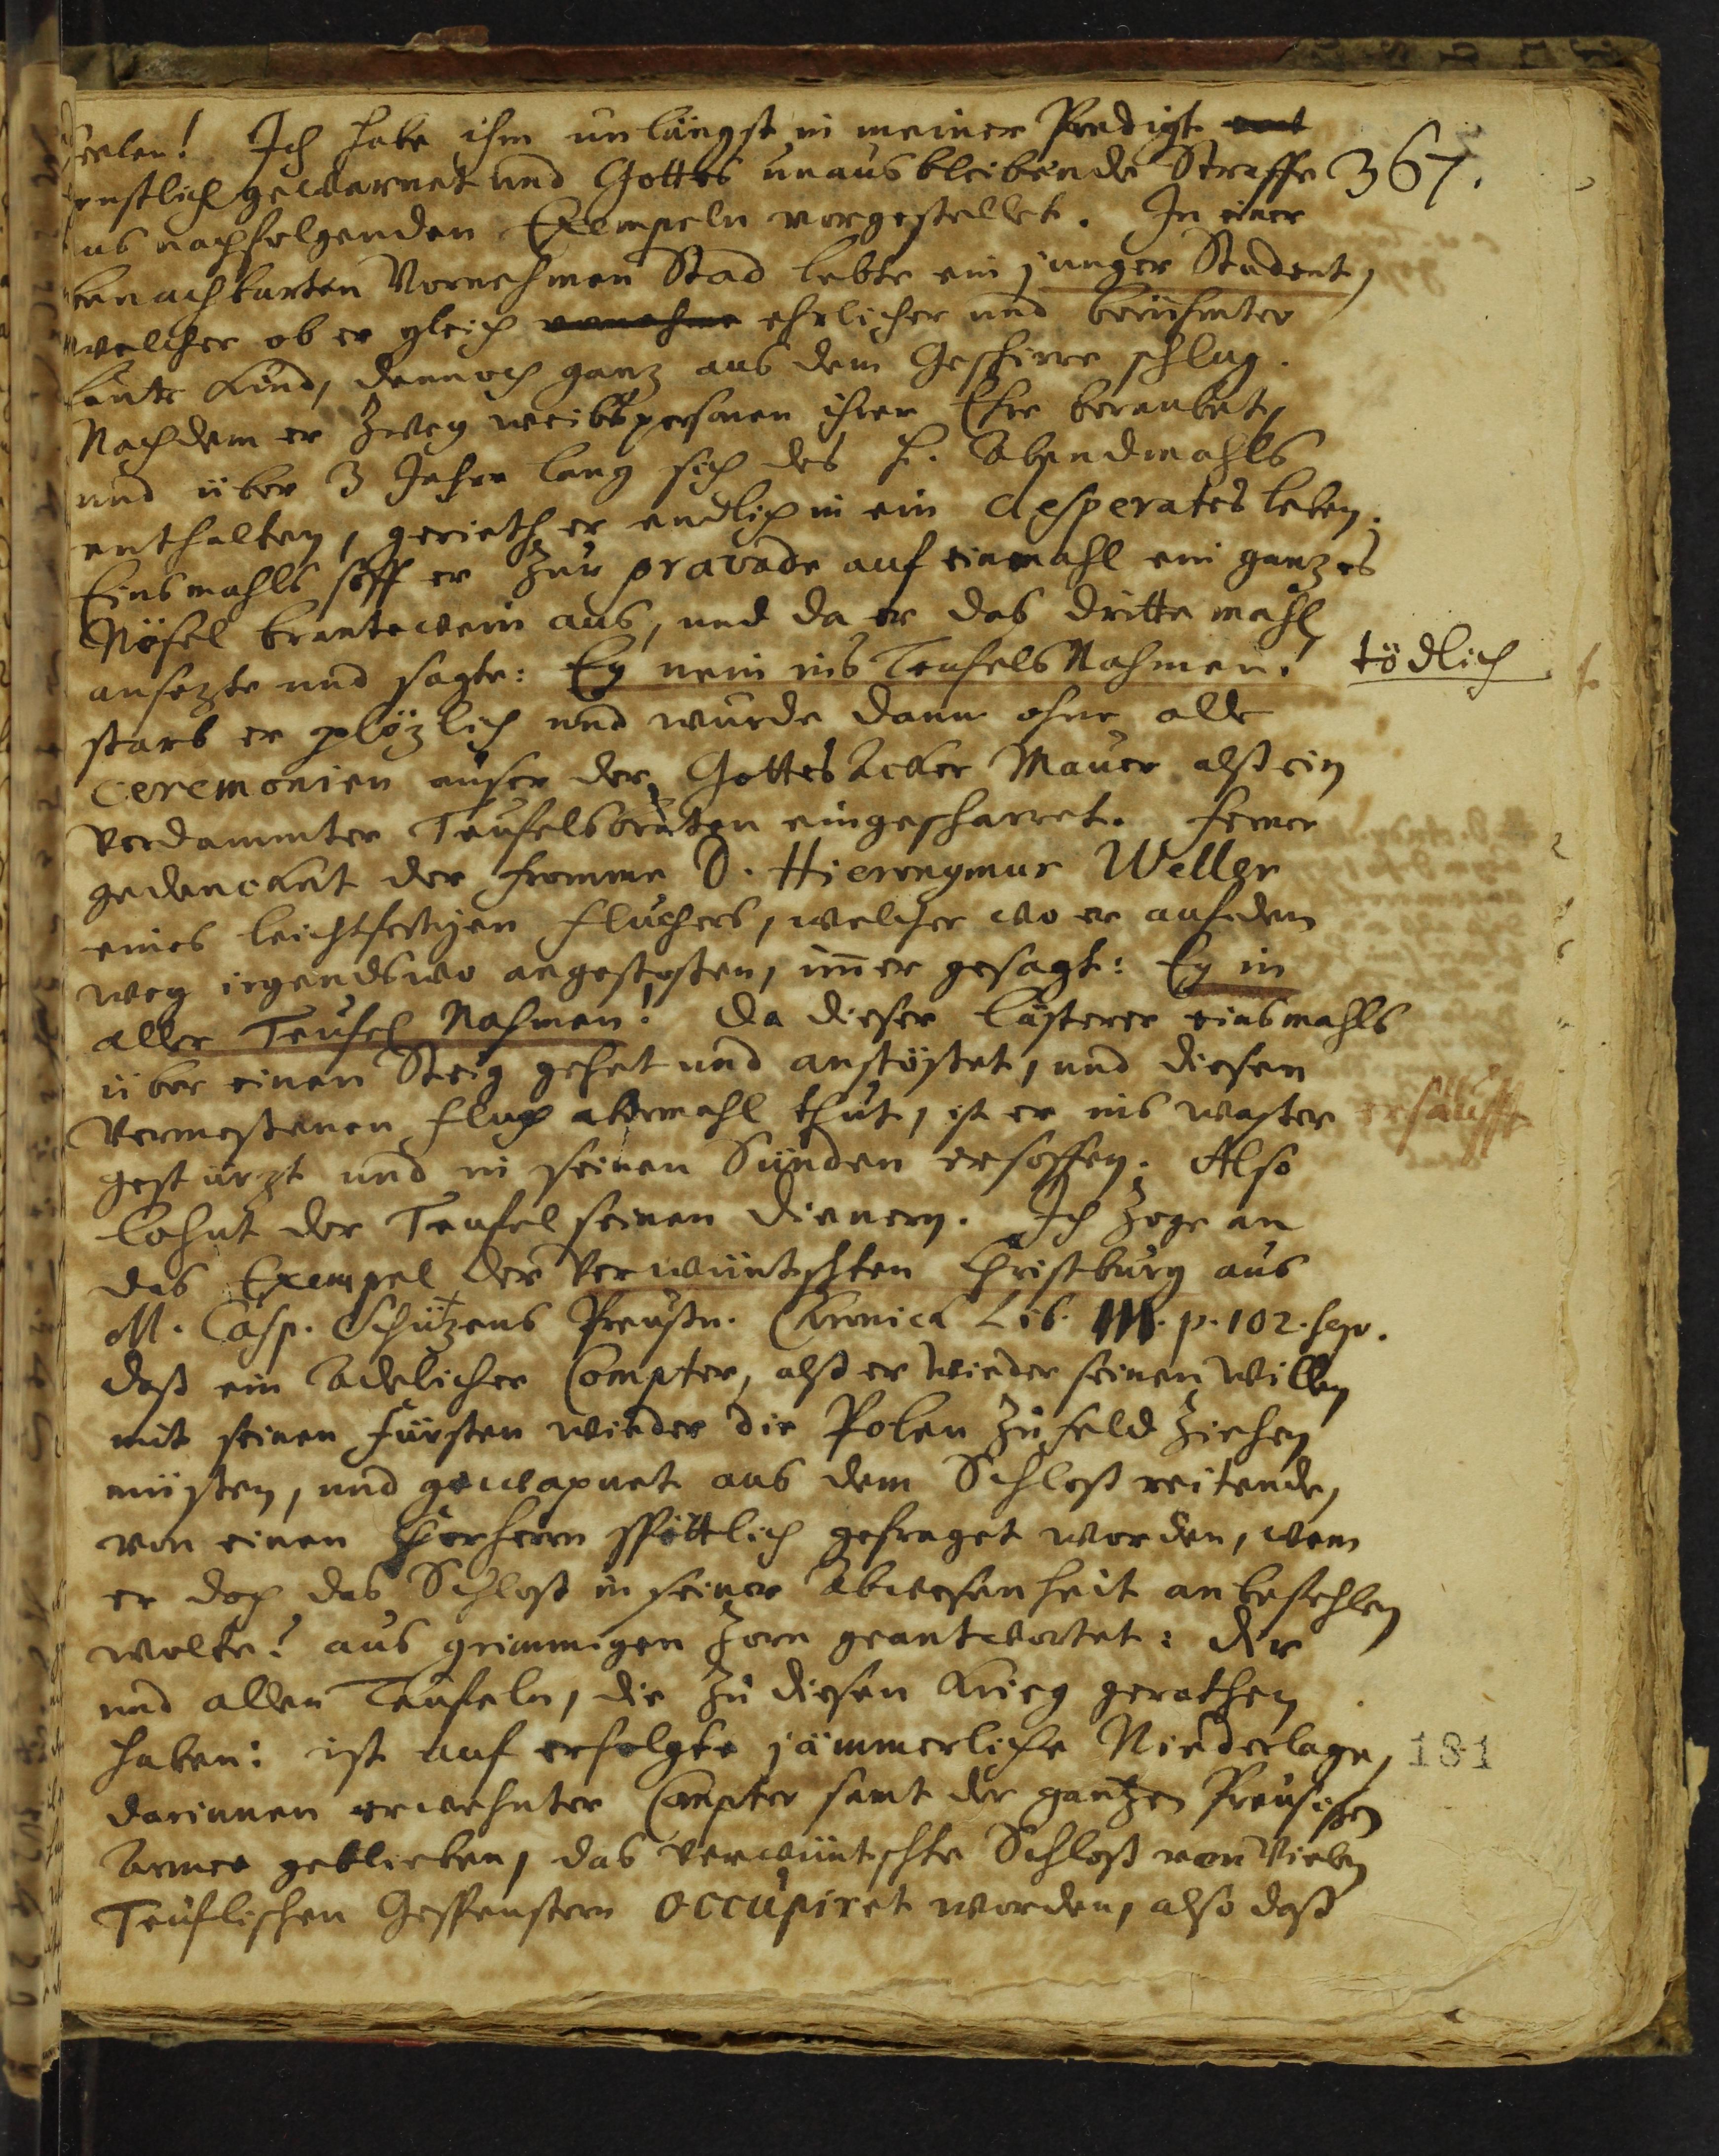 Seelen! Ich habe ihn unlängst in meiner Predigt
ernstlich gewarnet und Gottes unausbleibende Straffe
aus nachfolgenden Exempeln vorgestellet. In einer
benachbarten Vornehmen Stad lebte ein junger Student,
welcher ob er gleich vornehme ehrlicher und berühmter
Leute Kind, dennoch ganz aus dem Geschirre schlug.
Nachdem er zwey weibspersonen ihrer Ehre beraubet,
und über 3 Jahre lang sich des H. Abendmahls
enthalten, gerieth er endlich in ein desperates leben.
Einsmahls soff er zur pravade auf einmahl ein ganzes
Nösel brantewein aus, und da er das dritte mahl
ansezte und sagte: Ey nein ins Teufels Nahmen!
starb er plözlich und wurde dann ohne alle
ceremonien auser der Gottes Acker Mauer alß ein
verdammter Teufelsbraten eingescharret. Ferner
gedencket der fromme D. Hieronymus Weller
eines leichtfertigen fluchers, welcher wo er auf dem
weg irgendswo angestosten, im̄er gesagt: Ey in
aller Teufel Nahmen! Da dieser lästerer einsmahls
über einen Steig gehet und anstöstet, und diesen
vermessenen fluch abermahl thut, ist er ins waster
gestürzt und in seinen Sünden ersoffen. Also
lohnt der Teufel seinen dienern. Ich zoge an
das Exempel der verwüntschten Christburg aus
M. Casp. Schützens Preußn. Chronica Lib. III. p. 102. seqv.
daß ein Adelicher Compter, alß er wieder seinen willen
mit seinen Fürsten wieder die Polen zu feld ziehen
müsten, und gewapnet aus dem Schloß reitende,
von einen Chorherrn spöttlich gefraget worden, wem
er doch das Schloß in seiner Abwesenheit anbefehlen
wolte? aus grimmigen Zorn geantwortet: dir
und allen Teufeln, die zu diesen Krieg gerathen
haben: ist auf erfolgte jämmerliche Niederlage,
darinnen erwehnter Compter samt der gantzen Preusischen
Armee geblieben, das verwüntschte Schloß von vielen
Teuflischen Gespenstern occupiret worden, also daß
367.
tödlich
ersäufft
181